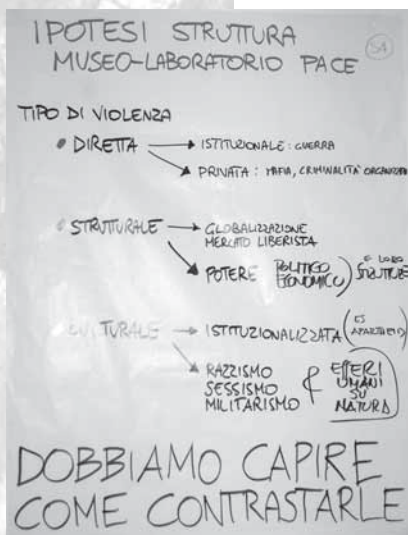 IPOTESI STRUTTURA
MUSEO-LABORATORIO PACE
S1
TIPO DI VIOLENZA
• DIRETTA → ISTITUZIONALE: GUERRA
→ PRIVATA: MAFIA, CRIMINALITÀ ORGANIZZATA
• STRUTTURALE → GLOBALIZZAZIONE
MERCATO LIBERISTA
→ POTERE POLITICO ECONOMICO) E LORO STRUTTURE
CULTURALE → ISTITUZIONALIZZATA (ES APARTHEID)
→ RAZZISMO
SESSISMO
MILITARISMO
{ ESSERI
UMANI
SU
NATURA
DOBBIAMO CAPIRE
COME CONTRASTARLE